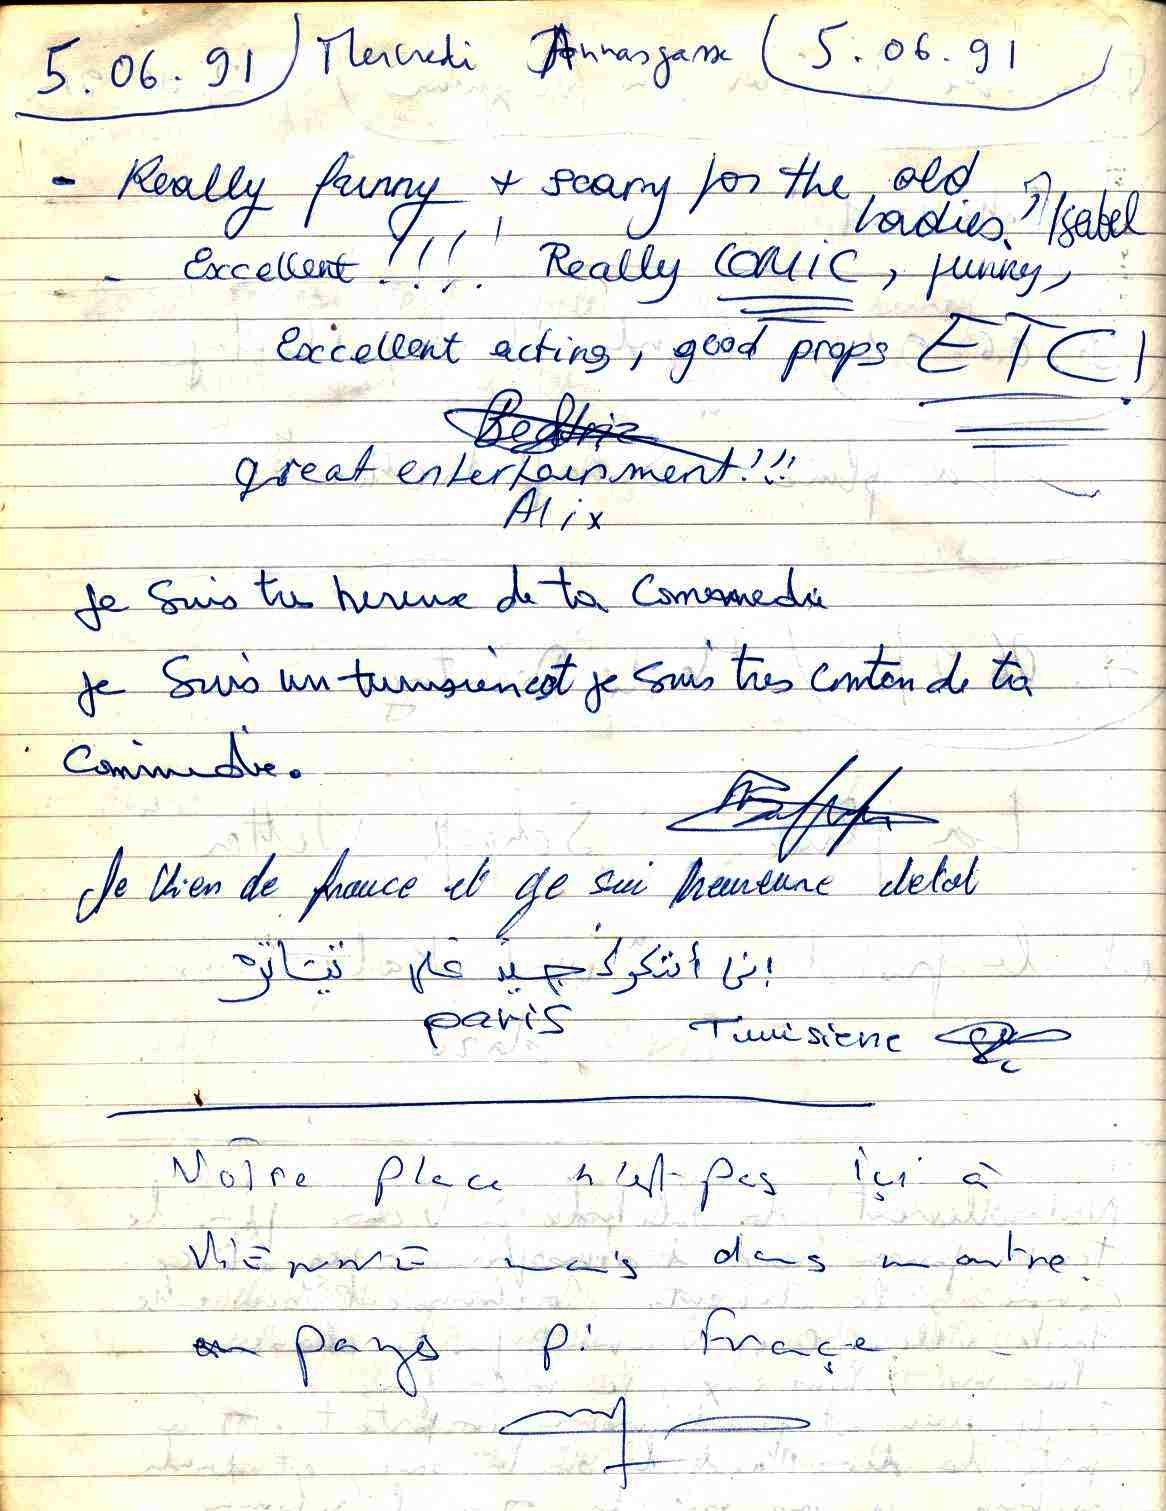 5.06.91 Mercredi Annasgasse 5.06.91
- Really funny + scary for the old
Ladies. Isabel
- Excellent!!!! Really COMIC, funny,
Exccellent acting, good props ETC!
Beatriz
great entertainment!!!
Alix
Je Suis tres hereux de ta
je Suis un tunsien et je suis tres conten de ta
Commedie.
Je vien de france et ge sui heureure detol
إني أشكرك جيد على تيتاتره
paris Tunisiene
Votre place n'est pas içi à
ViENNE mais dans un autre.
pays pi françe